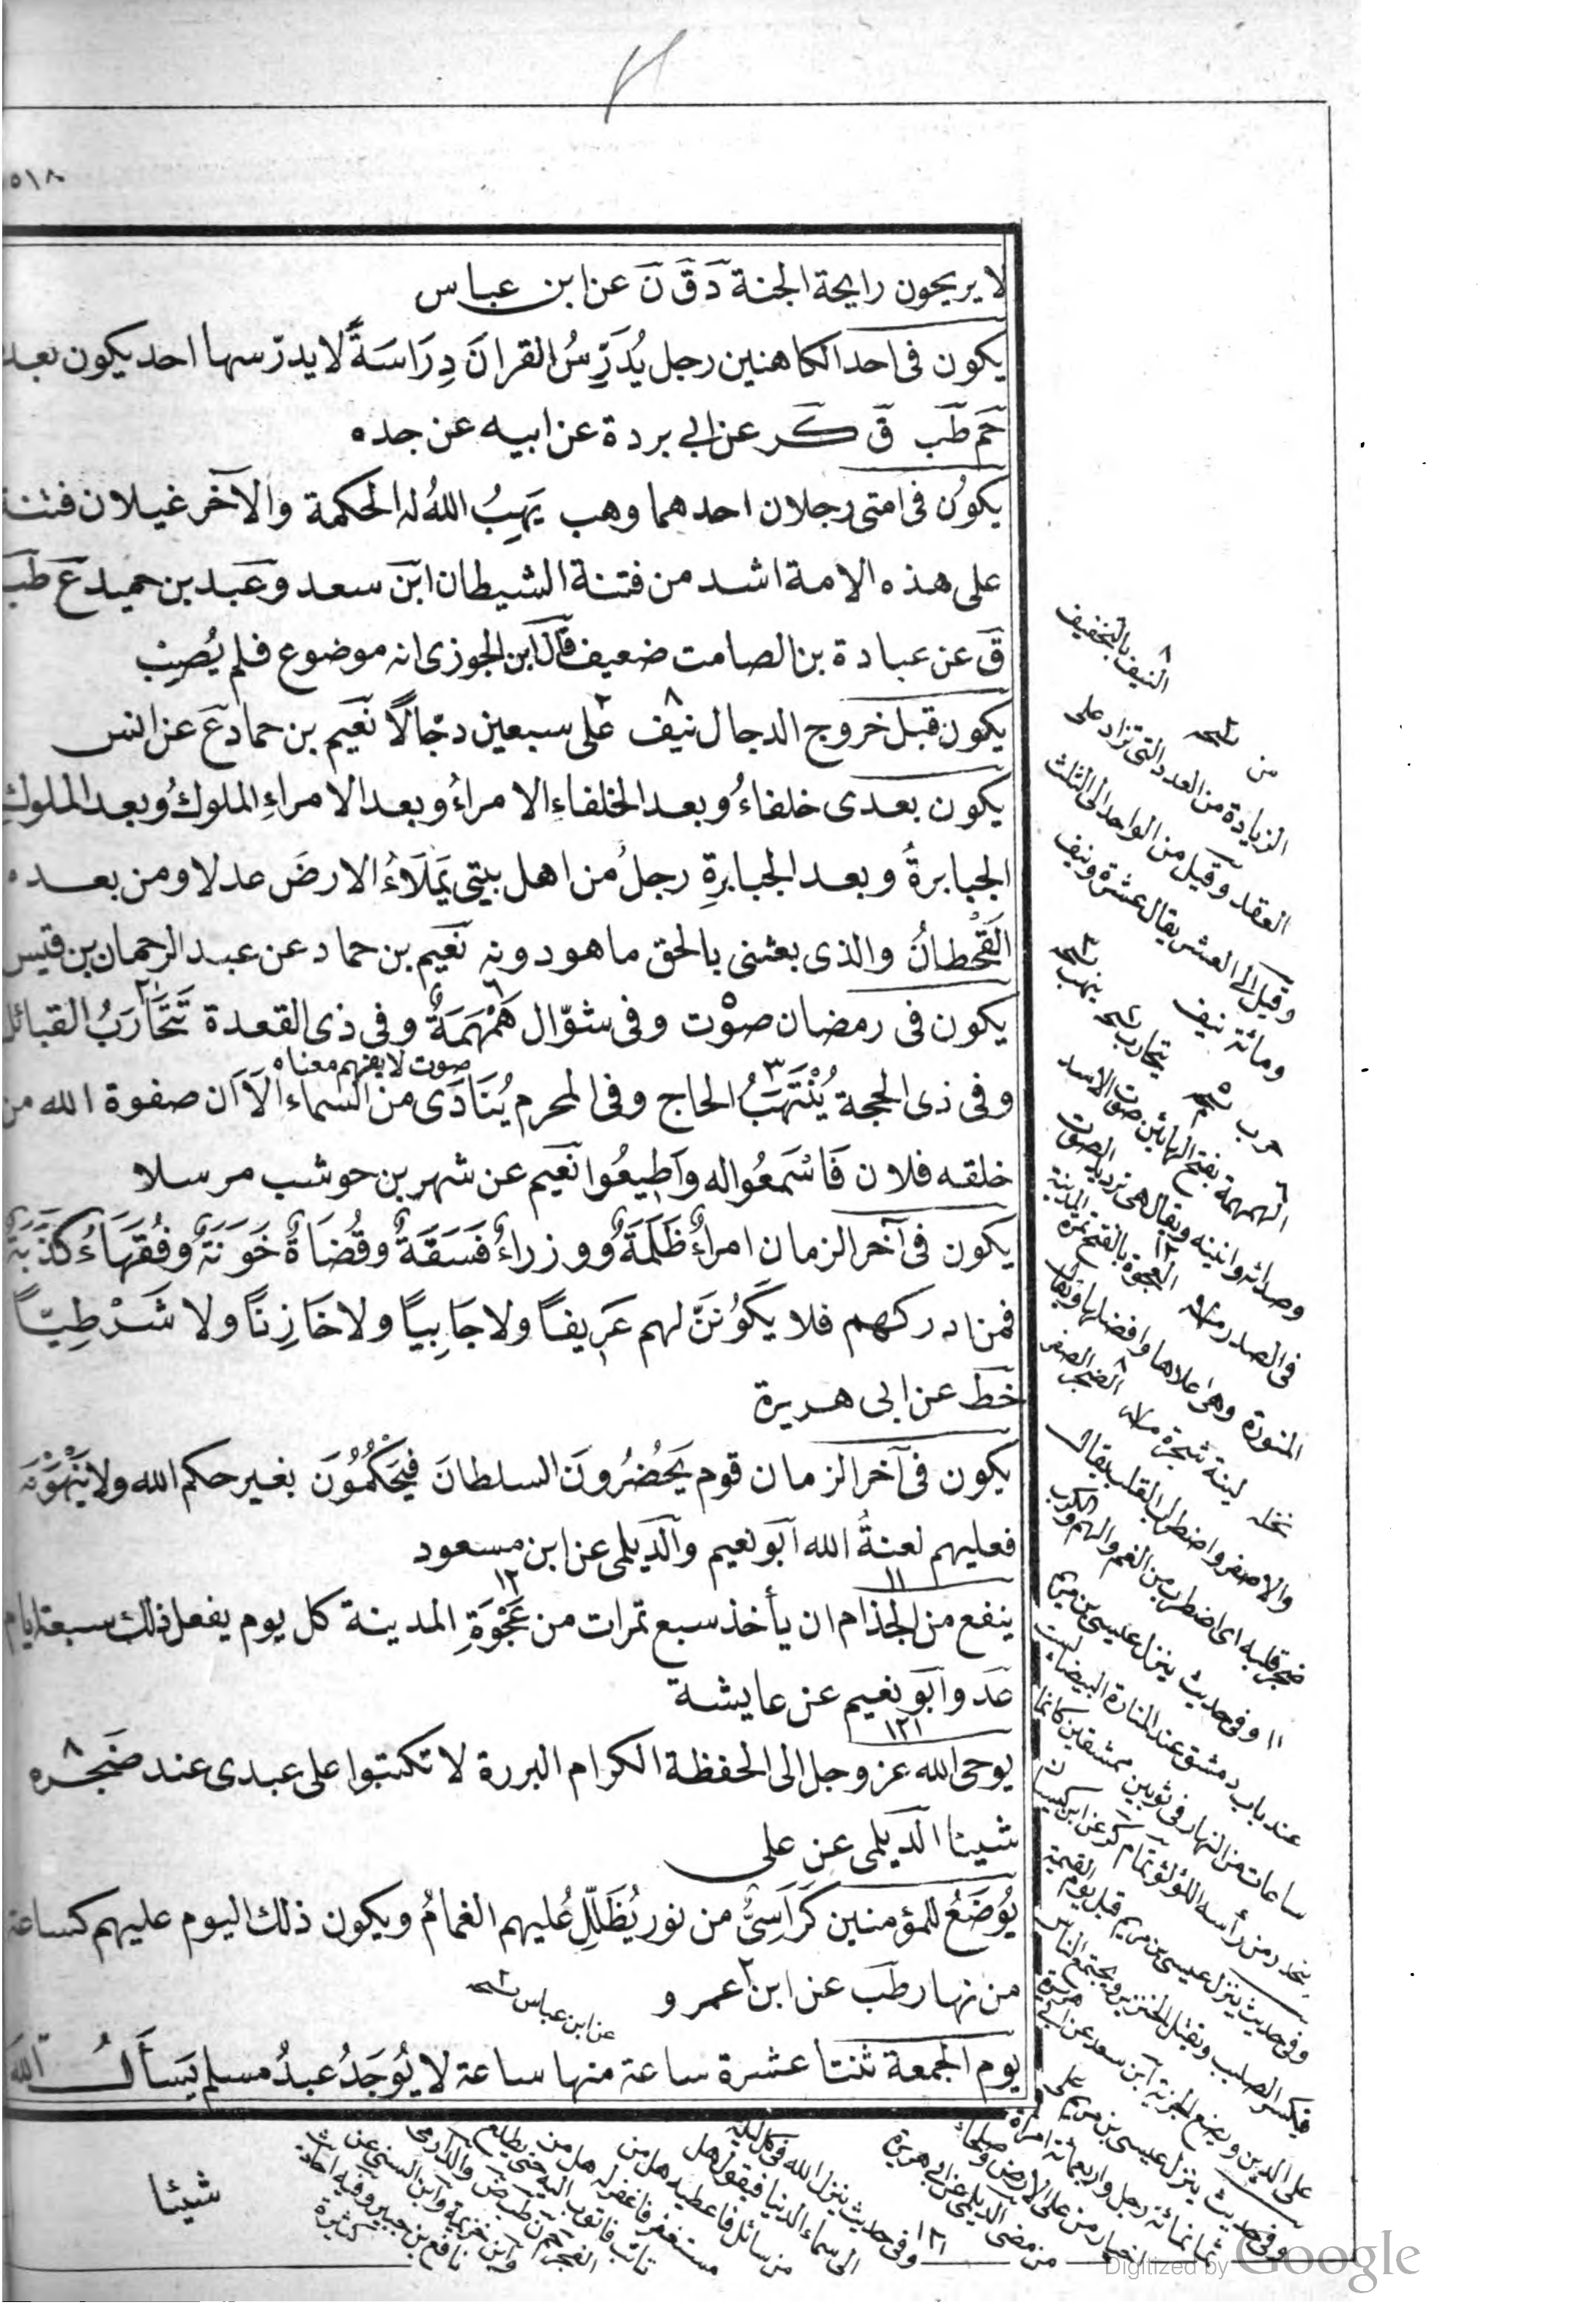 ٥١٨
لا يريحون رايحة الجنة دَ قَ نَ عن ابن عباس
يكون فى احد الكاهنين رجل يُدَرِّسُ القرانَ دِرَاسَةً لا يدرّسها احد يكون بعد
حَم طَب قَ كَر عن ابى بردة عن ابيه عن جده
يكونُ فى امتى رجلان احدهما وهب يَهِبُ اللهُ له الحكمة والآخر غيلان فتنة
على هذه الامة اشد من فتنة الشيطان ابن سعد وعبد بن حميد عَ طَب
قَ عن عبادة بن الصامت ضعيف قال ابن الجوزى انه موضوع فلم يُصِب
يكون قبل خروج الدجال نيّف ٨ على سبعين دجّالاً نعَيم بن حماد عَ عن انس
يكون بعدى خلفاءُ وبعد الخلفاءِ الامراءُ وبعد الامراءِ الملوكُ وبعد الملوك
الجبابرةُ وبعد الجبابرةِ رجلُ من اهل بيتى يَملَاءُ الارضَ عدلا ومن بعده
القَحْطانُ والذى بعثنى بالحق ما هو دونه نعَيم بن حماد عن عبد الرحمان بن قيس
يكون فى رمضان صوْت وفى شوّال هَمْهَمَةٌ وفى ذى القعدة تَتَحَارَبُ القبائل
صوت لا يفهم معناه
وفى ذى الحجة يُنْتَهَبُ ٣ الحاج وفى المحرم يُنَادَى من السماء اَلَا اَن صفوة الله من
خلقه فلان فَاسْمَعُوا له واَطِيعُوا نعَيم عن شهر بن حوشب مرسلا
يكون فى آخر الزمان امراءٌ ظَلَمَةٌ ووزراءُ فَسَقَةٌ وقُضَاةٌ خَوَنَةٌ وفُقَهَاءُ كَذَبَةٌ
فمن ادركهم فلا يَكُونَنَّ لهم عَرِيفاً ولا جَابِيّاً ولا خَازِنًا ولا شَرْطِيّاً
خَط عن ابى هريرة
يكون فى آخر الزمان قوم يَحْضُرُونَ السلطانَ فَيَحْكُمُونَ بغير حكم الله ولا يَنْهَوْنَه
فعليهم لعنةُ الله ابَو نعيم والَديلمى عن ابن مسعود
١١ ١٢
ينفع من الجذام ان يأخذ سبع تمرات من عَجْوَةِ المدينة كل يوم يفعل ذلك سبعة ايام
عَد وابَو نعيم عن عايشة
١٢١
يوحى الله عز وجل الى الحفظة الكرام البررة لا تكتبوا على عبدى عند ضَجَره ٨
شيئا الَديلمى عن على
يُوضَعُ للمؤمنين كَرَاَسِىُّ من نور يُظَلِّلُ عليهم الغمامُ ويكون ذلك اليوم عليهم كساعة
من نهار طَب عن ابن ٢ عمرو
عن ابن عباس نسخه
يوم الجمعة ثنتا عشرة ساعة منها ساعة لا يُوجَدُ عبدُ مسلم يَسأَلُ اللهَ
شيئا
٨ النيف بالتخفيف
الزيادة من العدد التى تزاد على
العقد وقيل من الواحد الى الثلث
وقيل الى العشر يقال عشرة ونيف
ومائة نيف
الهمهمة بفتح الهائين صوت الاسد
١٢ العجوة بالفتح تمرة المدينة
المنورة وهى اعلاها وافضلها
ضجر قلبه اى اضطرب من الغم والهم والكرب
١١ وفى حديث ينزل عيسى بن مريم
عند باب دمشق عند المنارة البيضاء
ساعات من النهار فى ثوبين ممشقين كانما
ينحدر من رأسه اللؤلؤ
وفى حديث ينزل عيسى بن مريم قبل يوم القيمة
فيكسر الصليب ويقتل الخنزير ويجتمع الناس
على الدين ويضع الجزية ابن سعد عن ابى هريرة
وفى حديث ينزل عيسى بن مريم على
ثمانمائة رجل واربعمائة امرأة
من مضى الديلمى عن ابى هريرة
١٢١ وفى حديث ينزل الله فى كل ليلة
الى سماء الدنيا فيقول هل
من سائل فاعطيه هل من
مستغفر فاغفر له هل من
تائب فاتوب اليه حتى يطلع
الفجر
نافع بن جبير
Digitized by Google